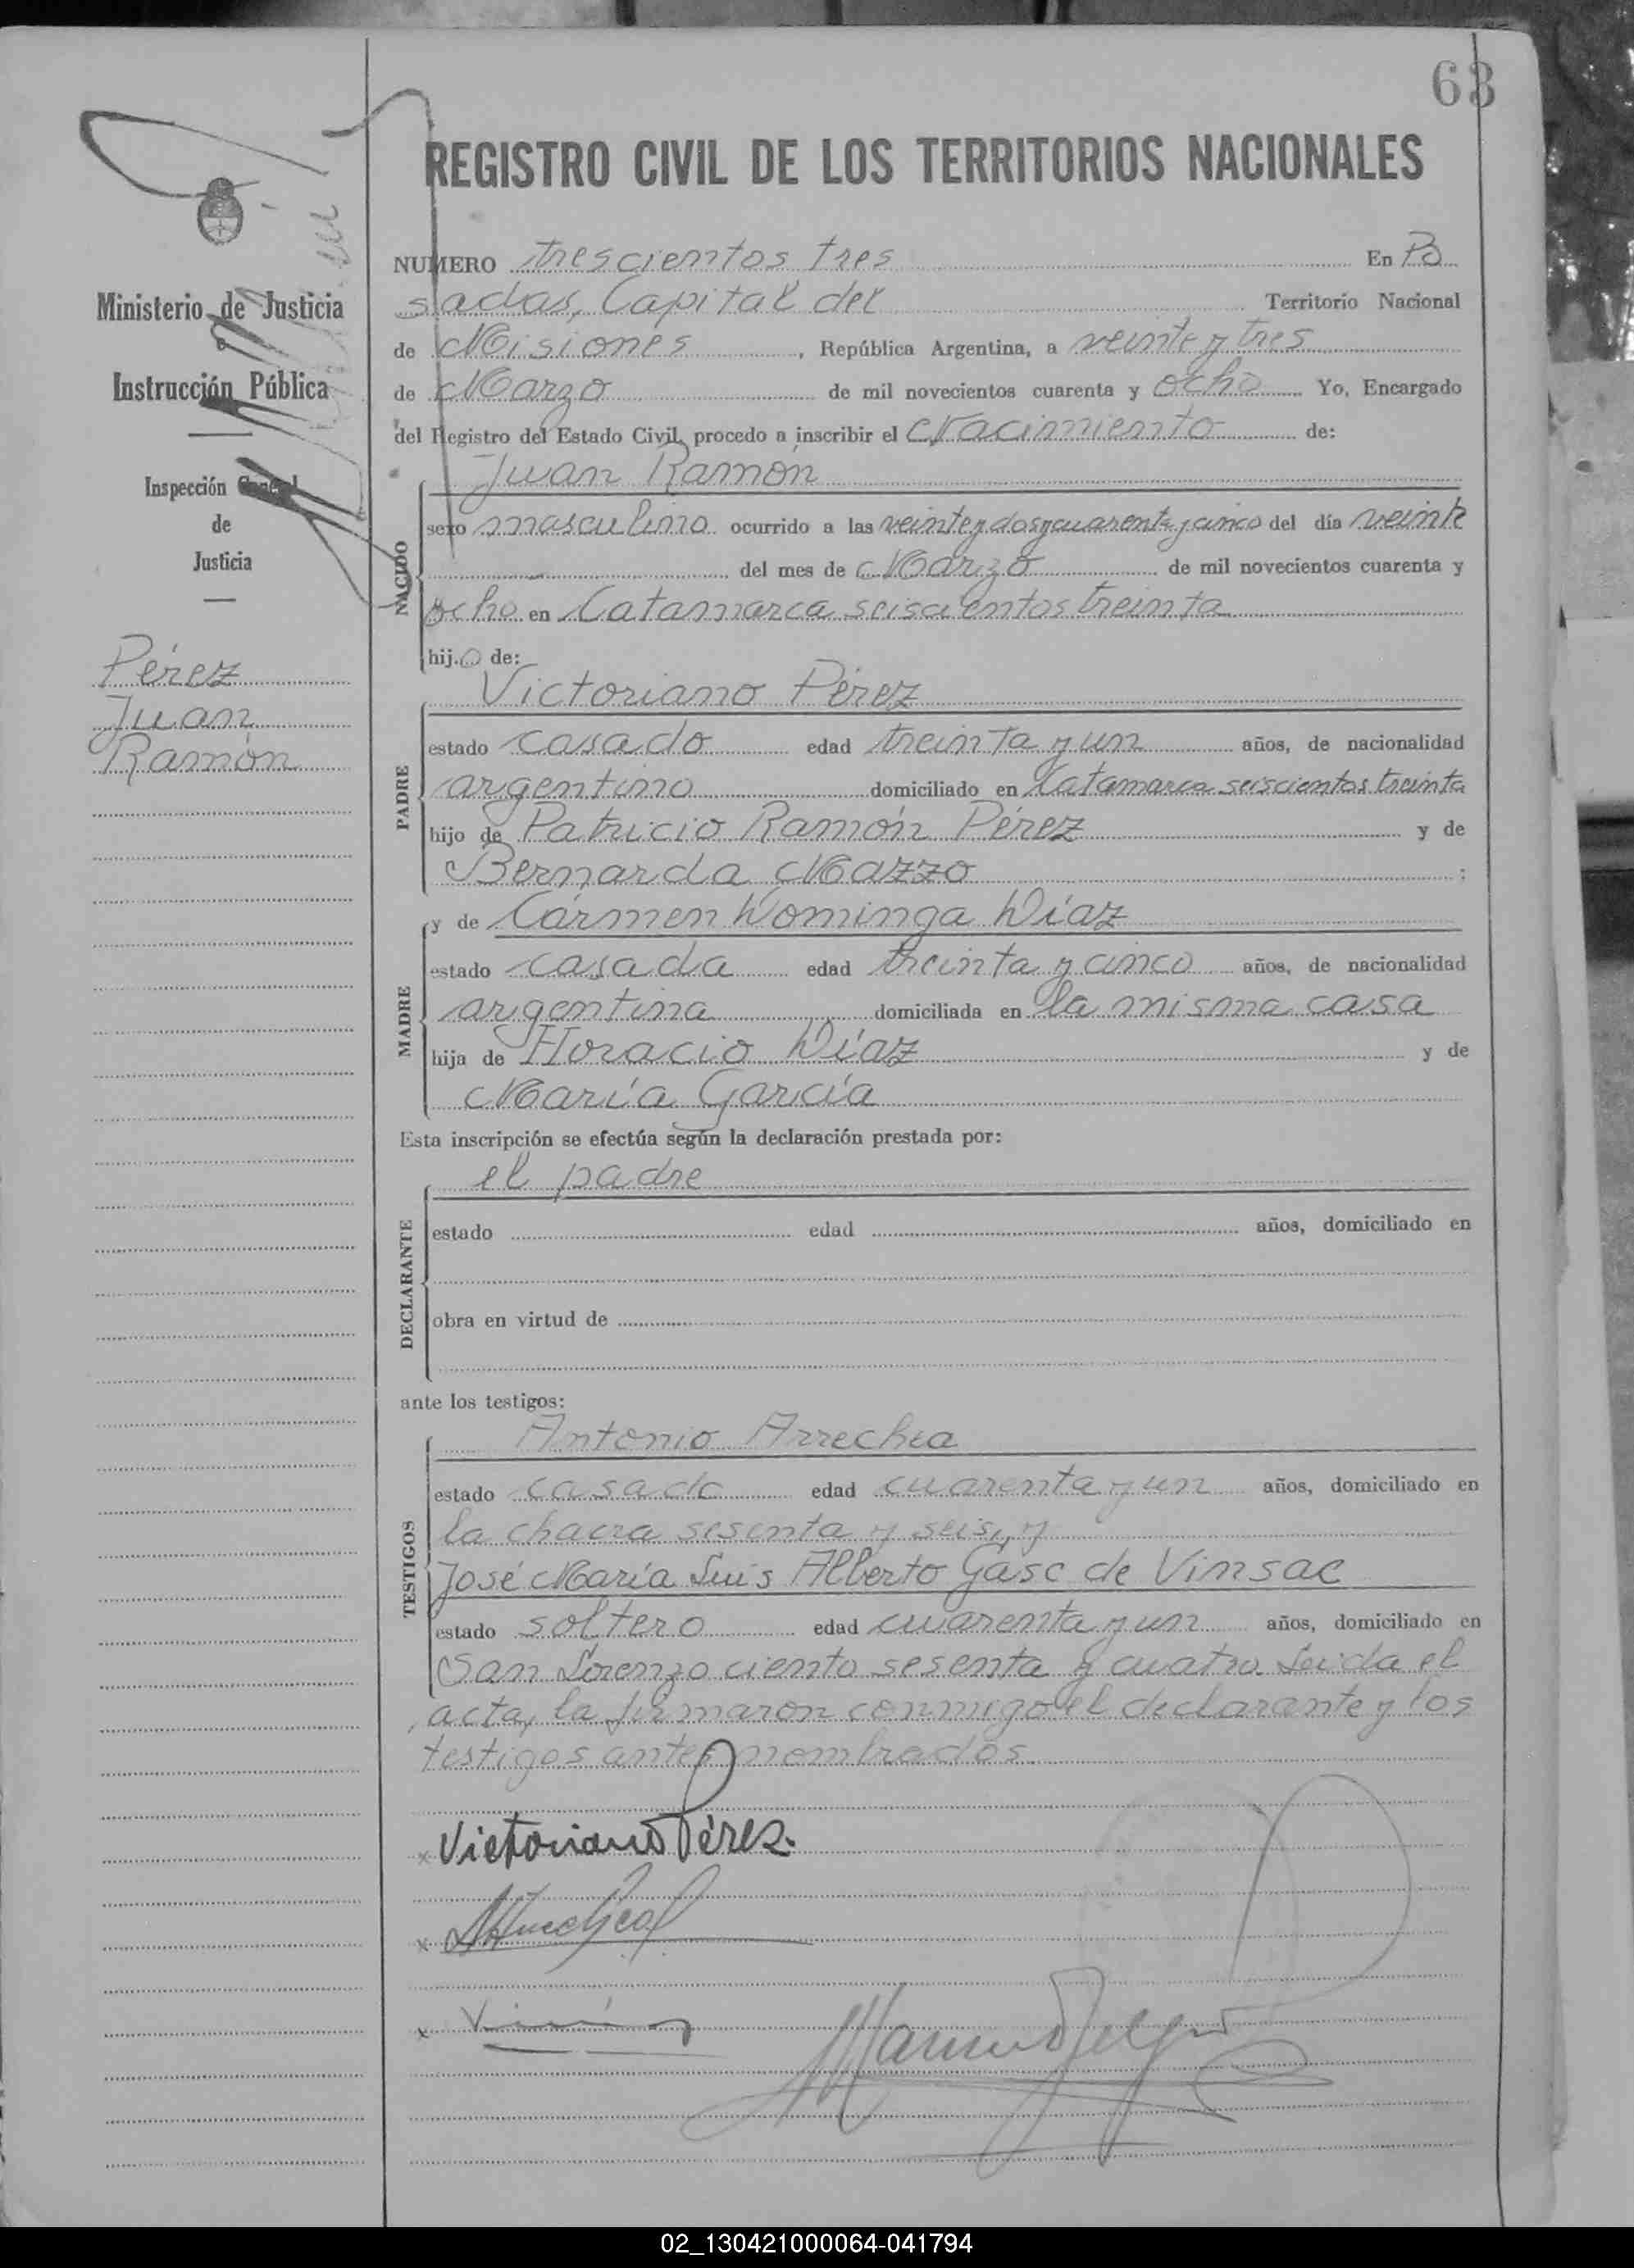 63
REGISTRO CIVIL DE LOS TERRITORIOS NACIONALES
Ministerio de Justicia
e
Instrucción Pública
Inspección General
de
Justicia
Pérez
Juan
Ramón
NUMERO trescientos tres En Po
sadas, Capital del Territorio Nacional
de Misiones, República Argentina, a veinte y tres
de Marzo de mil novecientos cuarenta y ocho Yo, Encargado
del Registro del Estado Civil, procedo a inscribir el Nacimiento de:
NACIDO
Juan Ramón
sexo masculino ocurrido a las veinte y dos y cuarenta y cinco del día veinte
del mes de Marzo de mil novecientos cuarenta y
ocho en Catamarca seiscientos treinta
hijo de:
PADRE
Victoriano Pérez
estado casado edad treinta y un años, de nacionalidad
argentino domiciliado en Catamarca seiscientos treinta
hijo de Patricio Ramón Pérez y de
Bernarda Mazzo ;
MADRE
y de Cármen Dominga Díaz
estado casada edad treinta y cinco años, de nacionalidad
argentina domiciliada en la misma casa
hija de Horacio Díaz y de
María García
Esta inscripción se efectúa según la declaración prestada por:
DECLARANTE
el padre
estado edad años, domiciliado en
obra en virtud de
ante los testigos:
TESTIGOS
Antonio Arrechea
estado casado edad cuarenta y un años, domiciliado en
la chacra sesenta y seis, y
José María Luis Alberto Gasc de Vinsac
estado soltero edad cuarenta y un años, domiciliado en
San Lorenzo ciento sesenta y cuatro. Leida el
acta, la firmaron conmigo el declarante y los
testigos antes nombrados
x Victoriano Pérez.
x
x
02_130421000064-041794